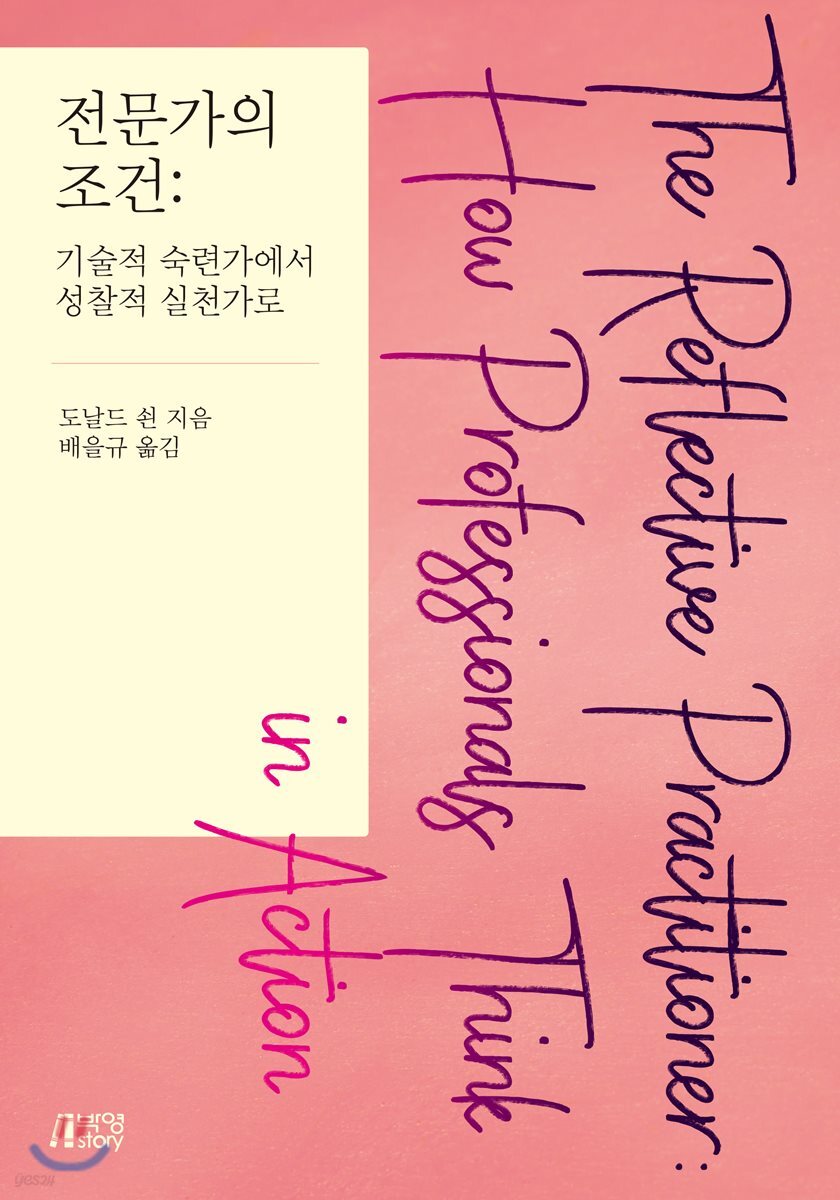 전문가의
조건:
기술적 숙련가에서
성찰적 실천가로
도날드 쇤 지음
배을규 옮김
The Reflective Practitioner:
How Professionals Think
in Action
박영
story
yes24